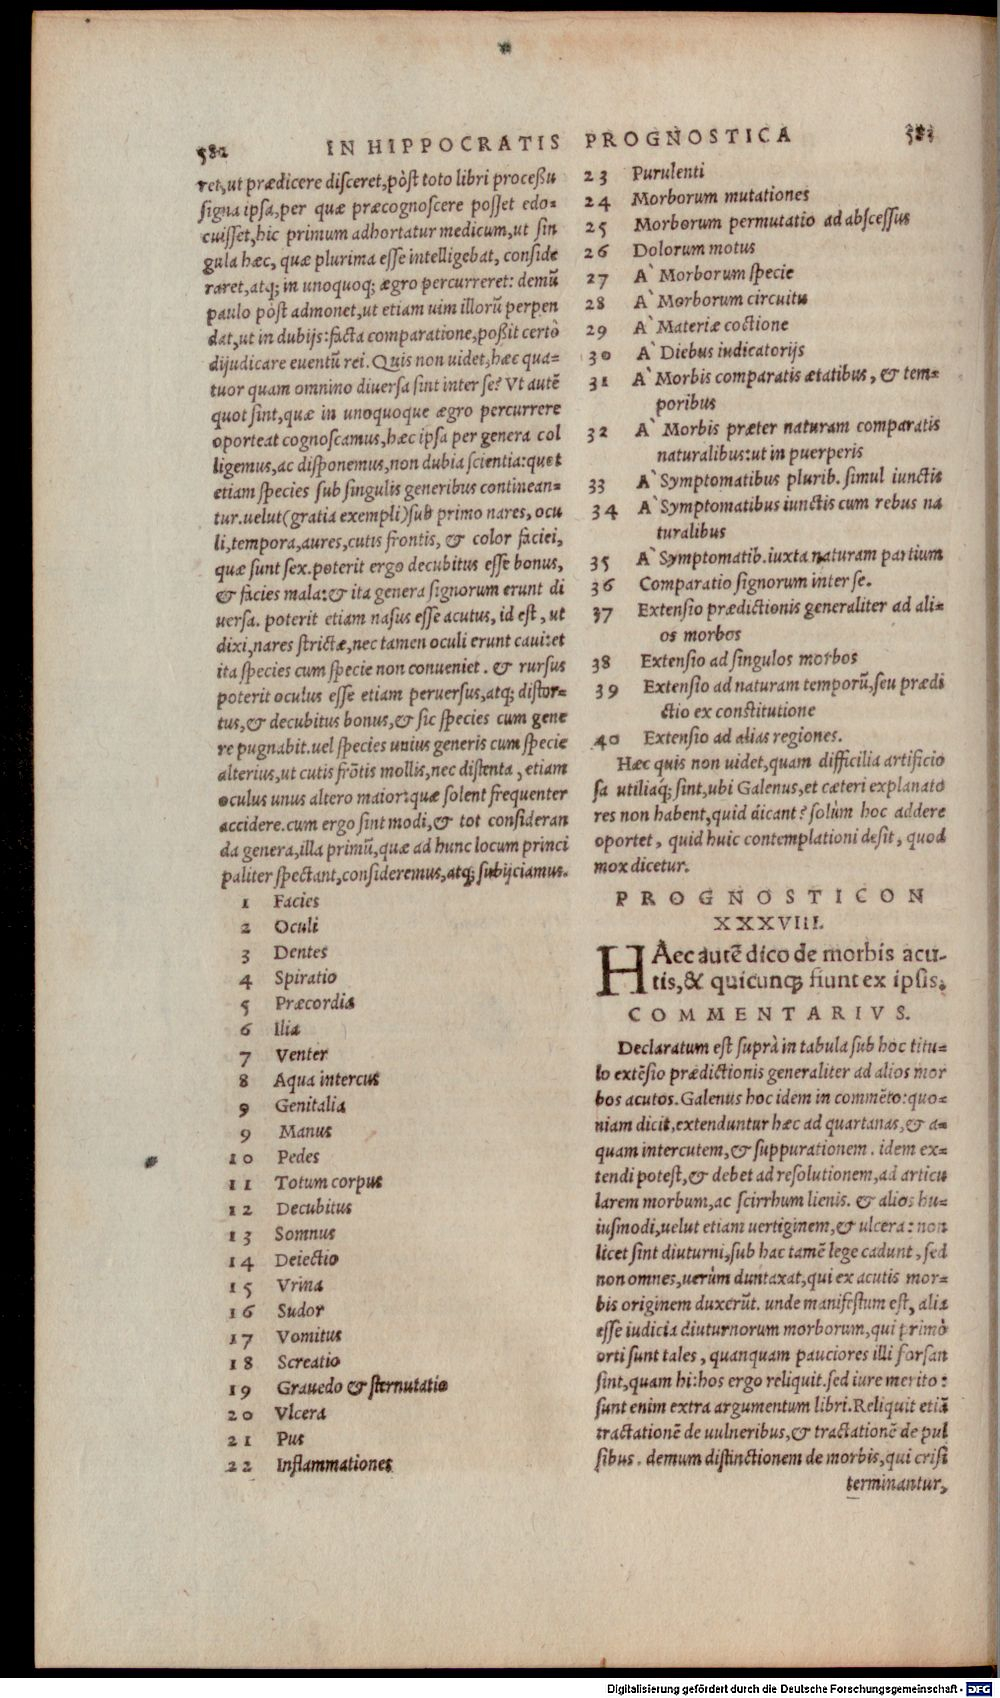 582 IN HIPPOCRATIS PROGNOSTICA 583
ret, ut prædicere disceret, pòst toto libri processu
signa ipsa, per quæ præcognoscere posset edo-
cuisset, hic primum adhortatur medicum, ut sin
gula hæc, quæ plurima esse intelligebat, conside
raret, atq; in unoquoq; ægro percurreret: demũ
paulo pòst admonet, ut etiam uim illorũ perpen
dat, ut in dubijs: facta comparatione, possit certò
dijudicare euentũ rei. Quis non uidet, hæc qua-
tuor quam omnino diuersa sint inter se? Vt autẽ
quot sint, quæ in unoquoque ægro percurrere
oporteat cognoscamus, hæc ipsa per genera col
ligemus, ac disponemus, non dubia scientia: quot
etiam species sub singulis generibus continean-
tur. uelut (gratia exempli) sub primo nares, ocu
li, tempora, aures, cutis frontis, & color faciei,
quæ sunt sex. poterit ergo decubitus esse bonus,
& facies mala: & ita genera signorum erunt di
uersa. poterit etiam nasus esse acutus, id est, ut
dixi, nares strictæ, nec tamen oculi erunt caui: et
ita species cum specie non conueniet. & rursus
poterit oculus esse etiam peruersus, atq; distor-
tus, & decubitus bonus, & sic species cum gene
re pugnabit. uel species unius generis cum specie
alterius, ut cutis frõtis mollis, nec distenta, etiam
oculus unus altero maior: quæ solent frequenter
accidere. cum ergo sint modi, & tot consideran
da genera, illa primũ, quæ ad hunc locum princi
paliter spectant, consideremus, atq; subijciamus.
1 Facies
2 Oculi
3 Dentes
4 Spiratio
5 Præcordia
6 Ilia
7 Venter
8 Aqua intercus
9 Genitalia
9 Manus
10 Pedes
11 Totum corpus
12 Decubitus
13 Somnus
14 Deiectio
15 Vrina
16 Sudor
17 Vomitus
18 Screatio
19 Grauedo & sternutatio
20 Vlcera
21 Pus
22 Inflammationes
23 Purulenti
24 Morborum mutationes
25 Morborum permutatio ad abscessus
26 Dolorum motus
27 A` Morborum specie
28 A` Morborum circuitu
29 A` Materiæ coctione
30 A` Diebus iudicatorijs
31 A` Morbis comparatis ætatibus, & tem-
poribus
32 A` Morbis præter naturam comparatis
naturalibus: ut in puerperis
33 A` Symptomatibus plurib. simul iunctis
34 A` Symptomatibus iunctis cum rebus na
turalibus
35 A` Symptomatib. iuxta naturam partium
36 Comparatio signorum inter se.
37 Extensio prædictionis generaliter ad ali-
os morbos
38 Extensio ad singulos morbos
39 Extensio ad naturam temporũ, seu prædi
ctio ex constitutione
40 Extensio ad alias regiones.
Hæc quis non uidet, quam difficilia artificio
sa utiliaq́; sint, ubi Galenus, et cæteri explanato
res non habent, quid dicant? solùm hoc addere
oportet, quid huic contemplationi desit, quod
mox dicetur.
PROGNOSTICON
XXXVIII.
HAec autẽ dico de morbis acu-
tis, & quicunq; fiunt ex ipsis.
COMMENTARIVS.
Declaratum est suprà in tabula sub hoc titu-
lo extẽsio prædictionis generaliter ad alios mor
bos acutos. Galenus hoc idem in commẽto: quo-
niam dicit, extenduntur hæc ad quartanas, & a-
quam intercutem, & suppurationem. idem ex-
tendi potest, & debet ad resolutionem, ad articu
larem morbum, ac scirrhum lienis. & alios hu-
iusmodi, uelut etiam uertiginem, & ulcera: non
licet sint diuturni, sub hac tamẽ lege cadunt, sed
non omnes, uerùm duntaxat, qui ex acutis mor-
bis originem duxerũt. unde manifestum est, alia
esse iudicia diuturnorum morborum, qui primò
orti sunt tales, quanquam pauciores illi forsan
sint, quam hi: hos ergo reliquit. sed iure merito:
sunt enim extra argumentum libri. Reliquit etiã
tractationẽ de uulneribus, & tractationẽ de pul
sibus. demum distinctionem de morbis, qui crisi
terminantur,
Digitalisierung gefördert durch die Deutsche Forschungsgemeinschaft - DFG